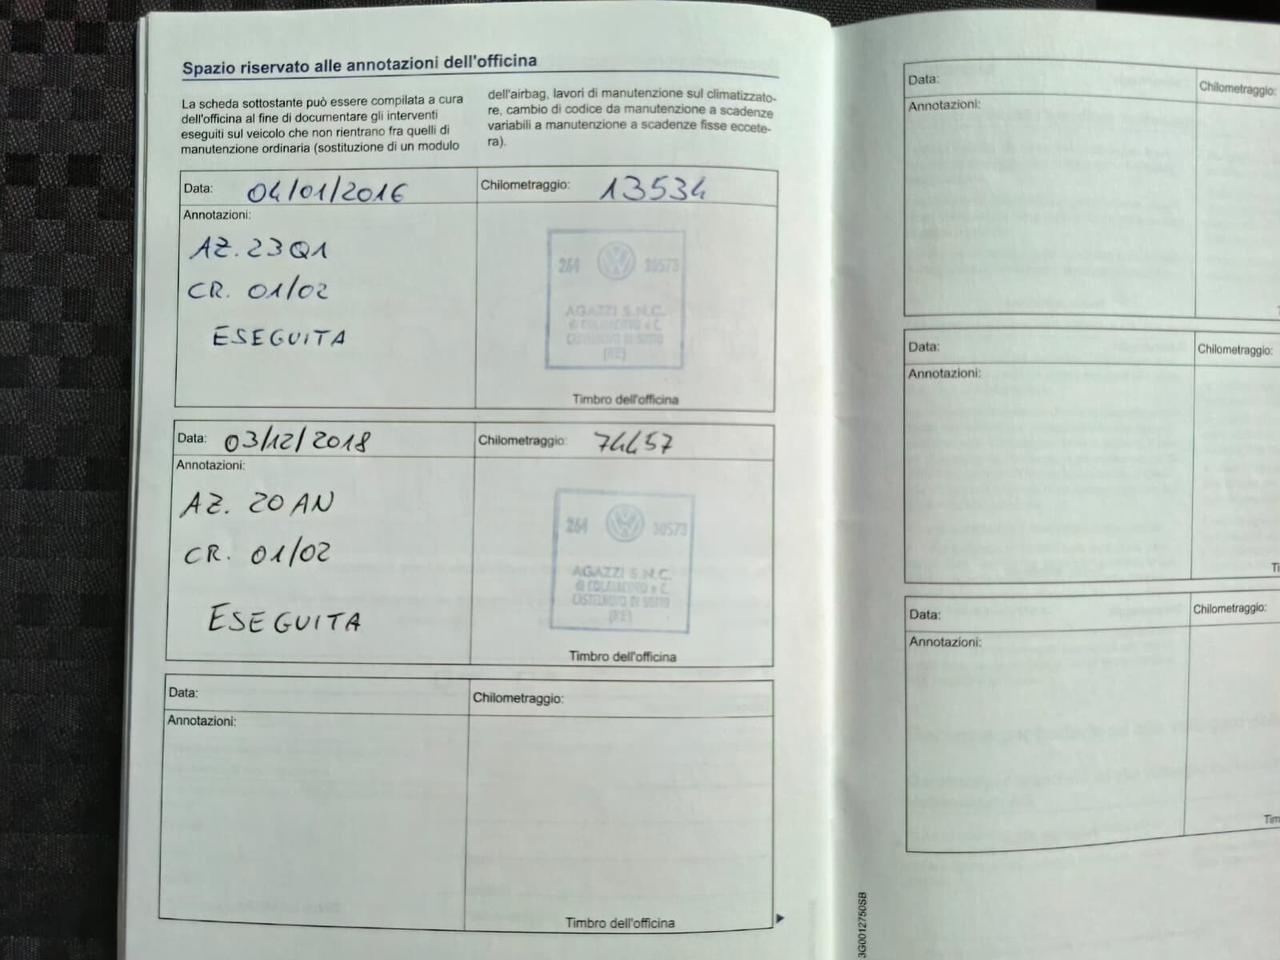 Spazio riservato alle annotazioni dell'officina
La scheda sottostante può essere compilata a cura
dell'officina al fine di documentare gli interventi
eseguiti sul veicolo che non rientrano fra quelli di
manutenzione ordinaria (sostituzione di un modulo
dell'airbag, lavori di manutenzione sul climatizzato-
re, cambio di codice da manutenzione a scadenze
variabili a manutenzione a scadenze fisse eccete-
ra).
Data: 04/01/2016
Chilometraggio: 13534
Annotazioni:
AZ. 23Q1
CR. 01/02
ESEGUITA
264 30573
AGAZZI S.N.C.
CASTELNOVO DI SOTTO
(RE)
Timbro dell'officina
Data: 03/12/2018
Chilometraggio: 74457
Annotazioni:
AZ. 20AN
CR. 01/02
ESEGUITA
264 30573
AGAZZI S.N.C.
CASTELNOVO DI SOTTO
(RE)
Timbro dell'officina
Data:
Chilometraggio:
Annotazioni:
Timbro dell'officina
Data:
Chilometraggio:
Annotazioni:
Data:
Chilometraggio:
Annotazioni:
Ti
Data:
Chilometraggio:
Annotazioni:
Tim
3G0012750SB